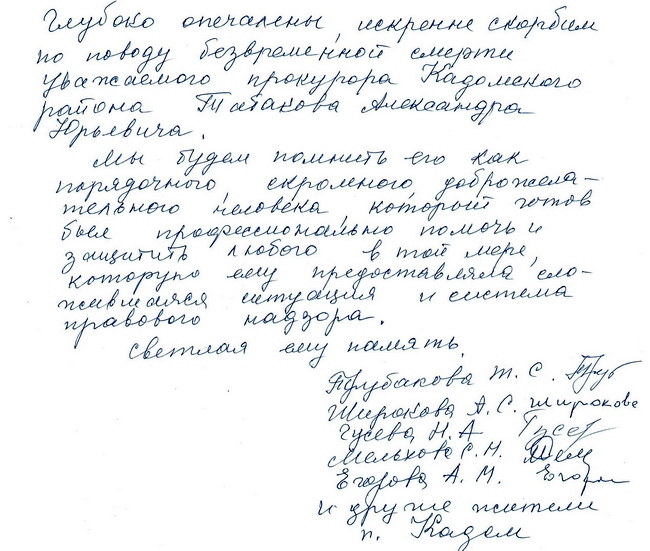 Глубоко опечалены, искренне скорбим
по поводу безвременной смерти
уважаемого прокурора Кадомского
района Татакова Александра
Юрьевича.
Мы будем помнить его как
порядочного, скромного, доброжела-
тельного человека, который готов
был профессионально помочь и
защитить любого в той мере,
которую ему предоставляла сло-
жившаяся ситуация и система
правового надзора.
Светлая ему память.
Трубакова Т. С. Труб
Широкова А. С. Широкова
Гусева Н. А Гусев
Мелехова С. Н.
Егорова А. М. Егор
и другие жители
п. Кадом